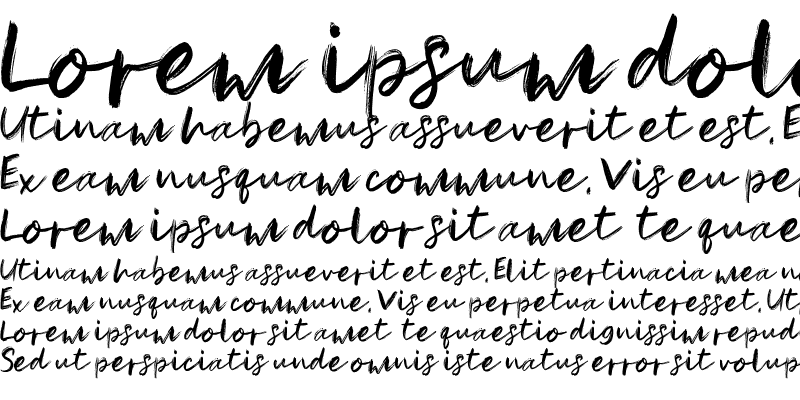 Lorem ipsum dol
Utinam habemus assueverit et est. E
Ex eam nusquam commune. Vis eu pe
Lorem ipsum dolor sit amet te quae
Utinam habemus assueverit et est. Elit pertinacia mea n
Ex eam nusquam commune. Vis eu perpetua interesset. Ut
Lorem ipsum dolor sit amet te quaestio dignissim repud
Sed ut perspiciatis unde omnis iste natus error sit volup